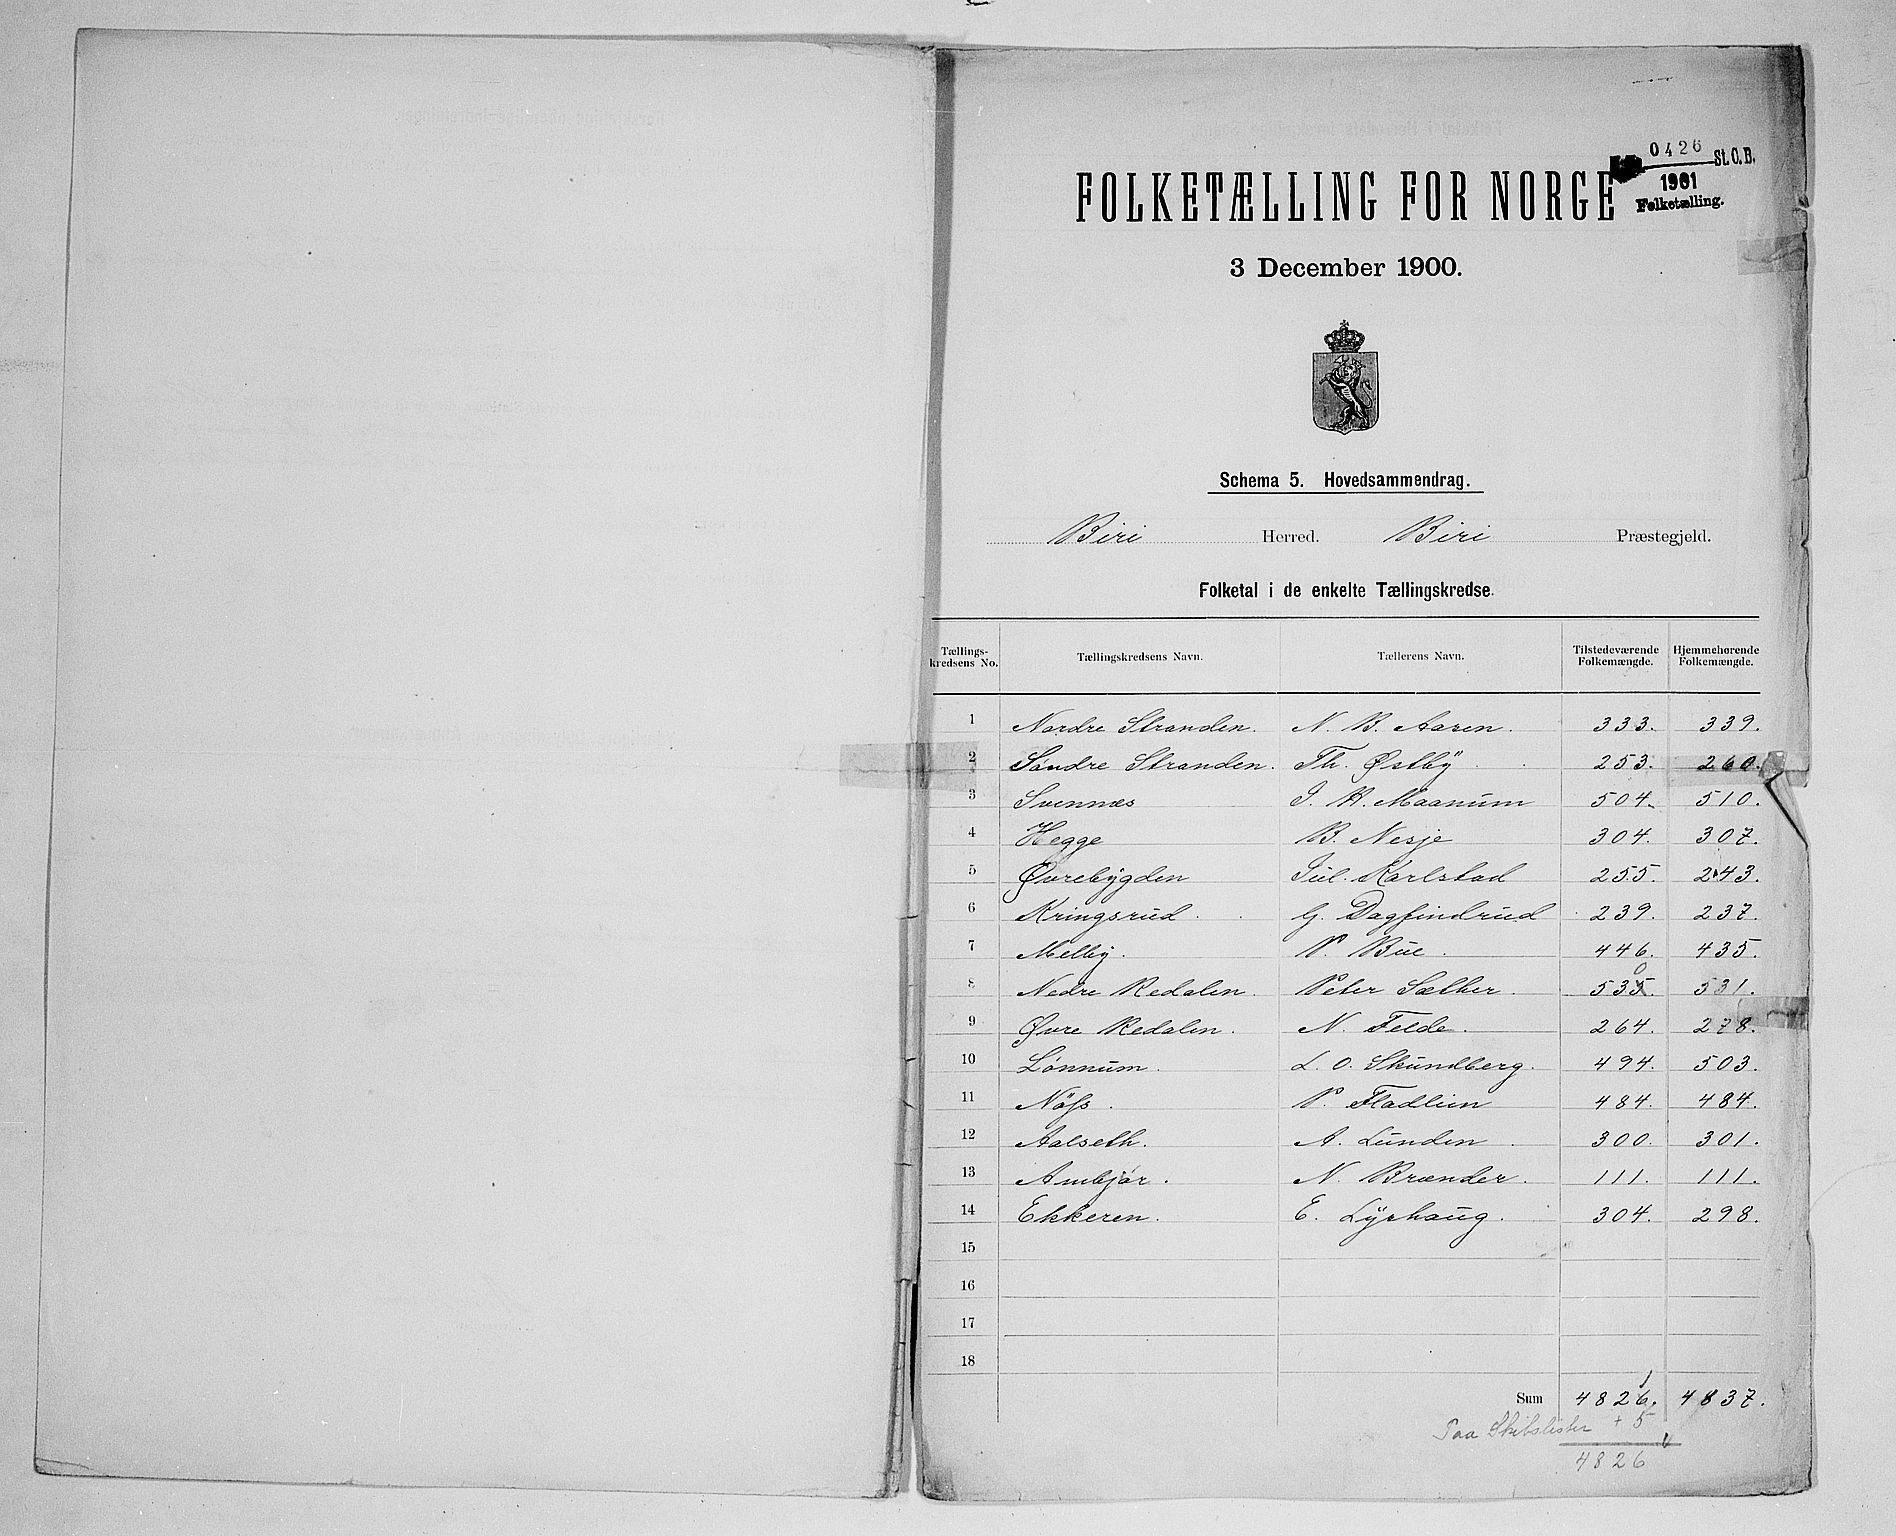 0426 St.C.B.
1901
Folketælling.
FOLKETÆLLING FOR NORGE
3 December 1900.
Schema 5. Hovedsammendrag.
Biri Herred. Biri Præstegjeld.
Folketal i de enkelte Tællingskredse.
Tællings-kredsens No. Tællingskredsens Navn. Tællerens Navn. Tilstedeværende Folkemængde. Hjemmehørende Folkemængde.
1 Nordre Stranden. N. B. Aasen. 333. 339.
2 Söndre Stranden. Th. Østby 253. 260.
3 Svennæs J. K. Maanum 504. 510.
4 Hegge B. Nesje 304. 307.
5 Øvrebygden Jul. Karlstad 255. 243.
6 Kringsrud. G. Dagfindrud 239. 237.
7 Melby. P. Bue. 446. 435.
0
8 Nedre Redalen. Peter Sæther. 535. 531.
9 Øvre Redalen. N. Felde. 264. 278.
10 Lönnum. L. O. Skundberg. 494. 503.
11 Nöss. P. Fladlien 484. 484.
12 Aalseth. A. Lunden 300. 301.
13 Ambjör. N. Brænder. 111. 111.
14 Ekkeren. E. Lyshaug. 304. 298.
15
16
17
18
1
Sum 4826. 4837.
Paa Skibslister + 5
4826